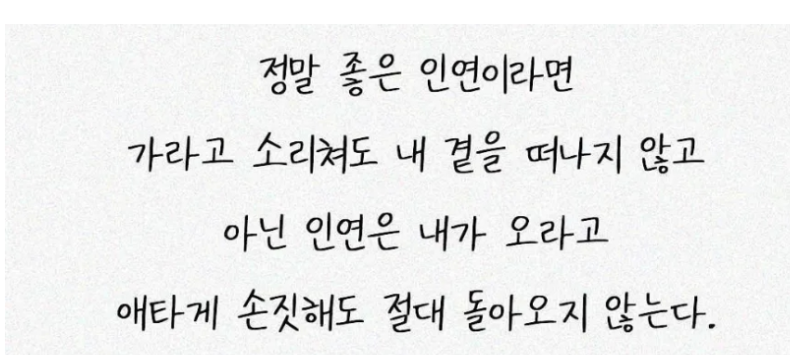 정말 좋은 인연이라면
가라고 소리쳐도 내 곁을 떠나지 않고
아닌 인연은 내가 오라고
애타게 손짓해도 절대 돌아오지 않는다.